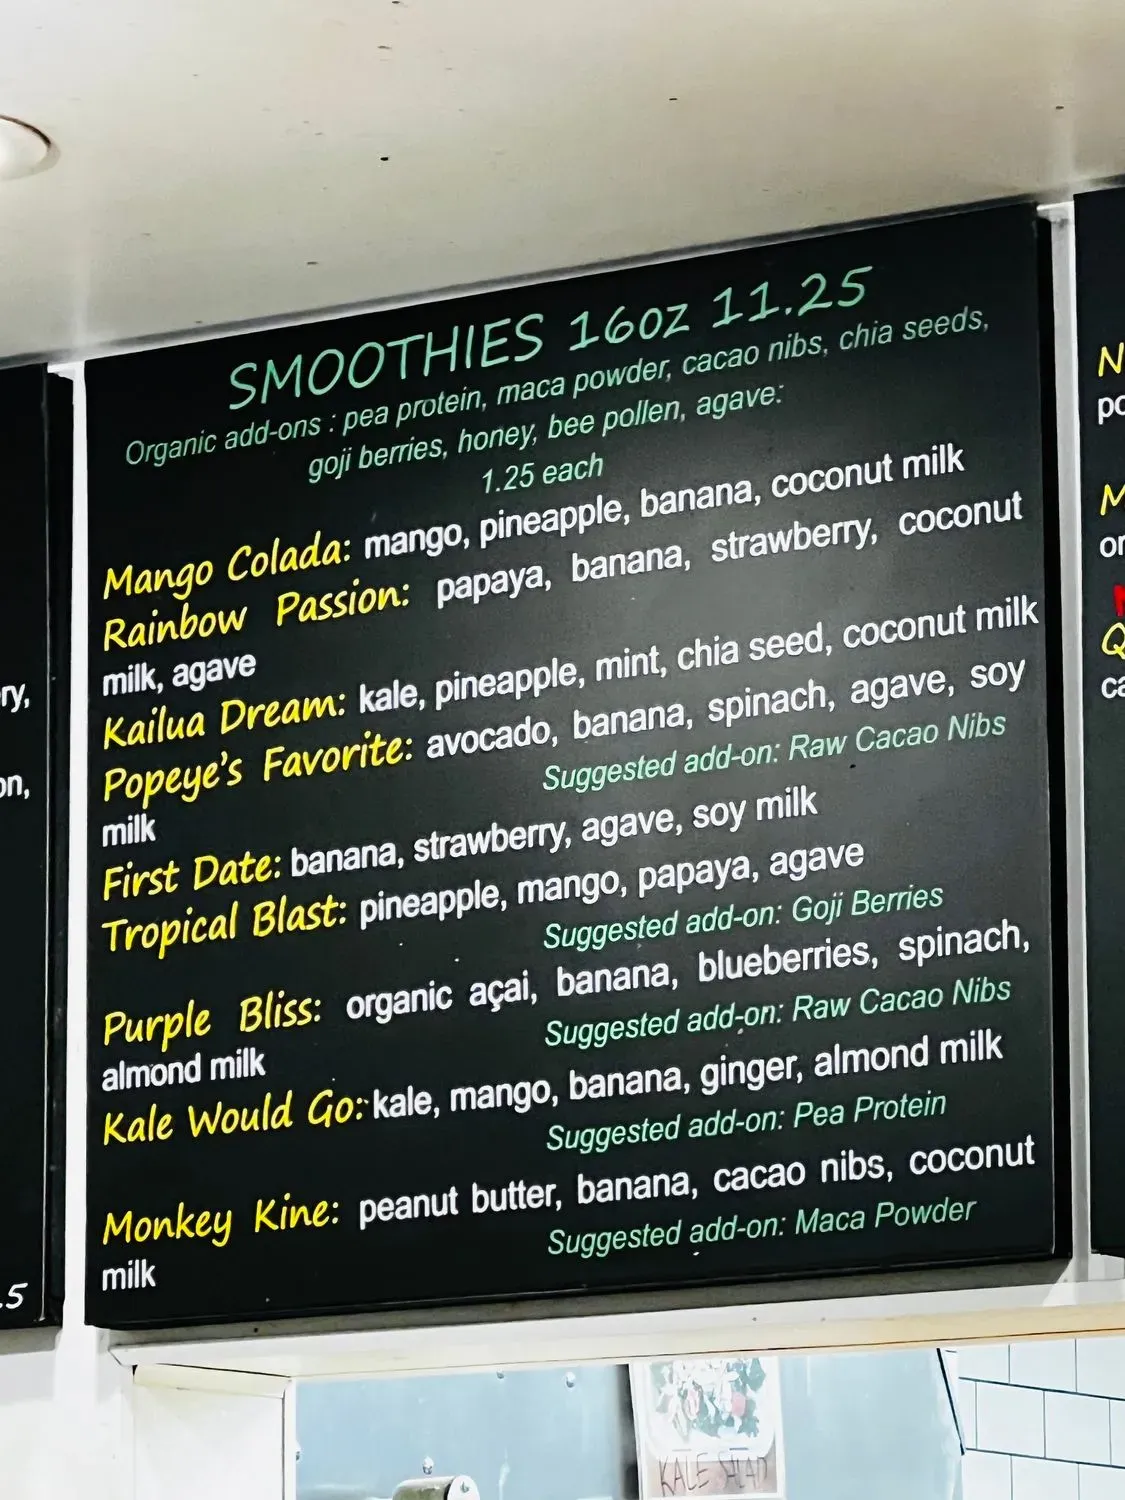 SMOOTHIES 16oz 11.25
Organic add-ons : pea protein, maca powder, cacao nibs, chia seeds,
goji berries, honey, bee pollen, agave:
1.25 each
Mango Colada: mango, pineapple, banana, coconut milk
Rainbow Passion: papaya, banana, strawberry, coconut
milk, agave
Kailua Dream: kale, pineapple, mint, chia seed, coconut milk
Popeye's Favorite: avocado, banana, spinach, agave, soy
Suggested add-on: Raw Cacao Nibs
milk
First Date: banana, strawberry, agave, soy milk
Tropical Blast: pineapple, mango, papaya, agave
Suggested add-on: Goji Berries
Purple Bliss: organic açai, banana, blueberries, spinach,
Suggested add-on: Raw Cacao Nibs
almond milk
Kale Would Go: kale, mango, banana, ginger, almond milk
Suggested add-on: Pea Protein
Monkey Kine: peanut butter, banana, cacao nibs, coconut
Suggested add-on: Maca Powder
milk
KALE SALAD